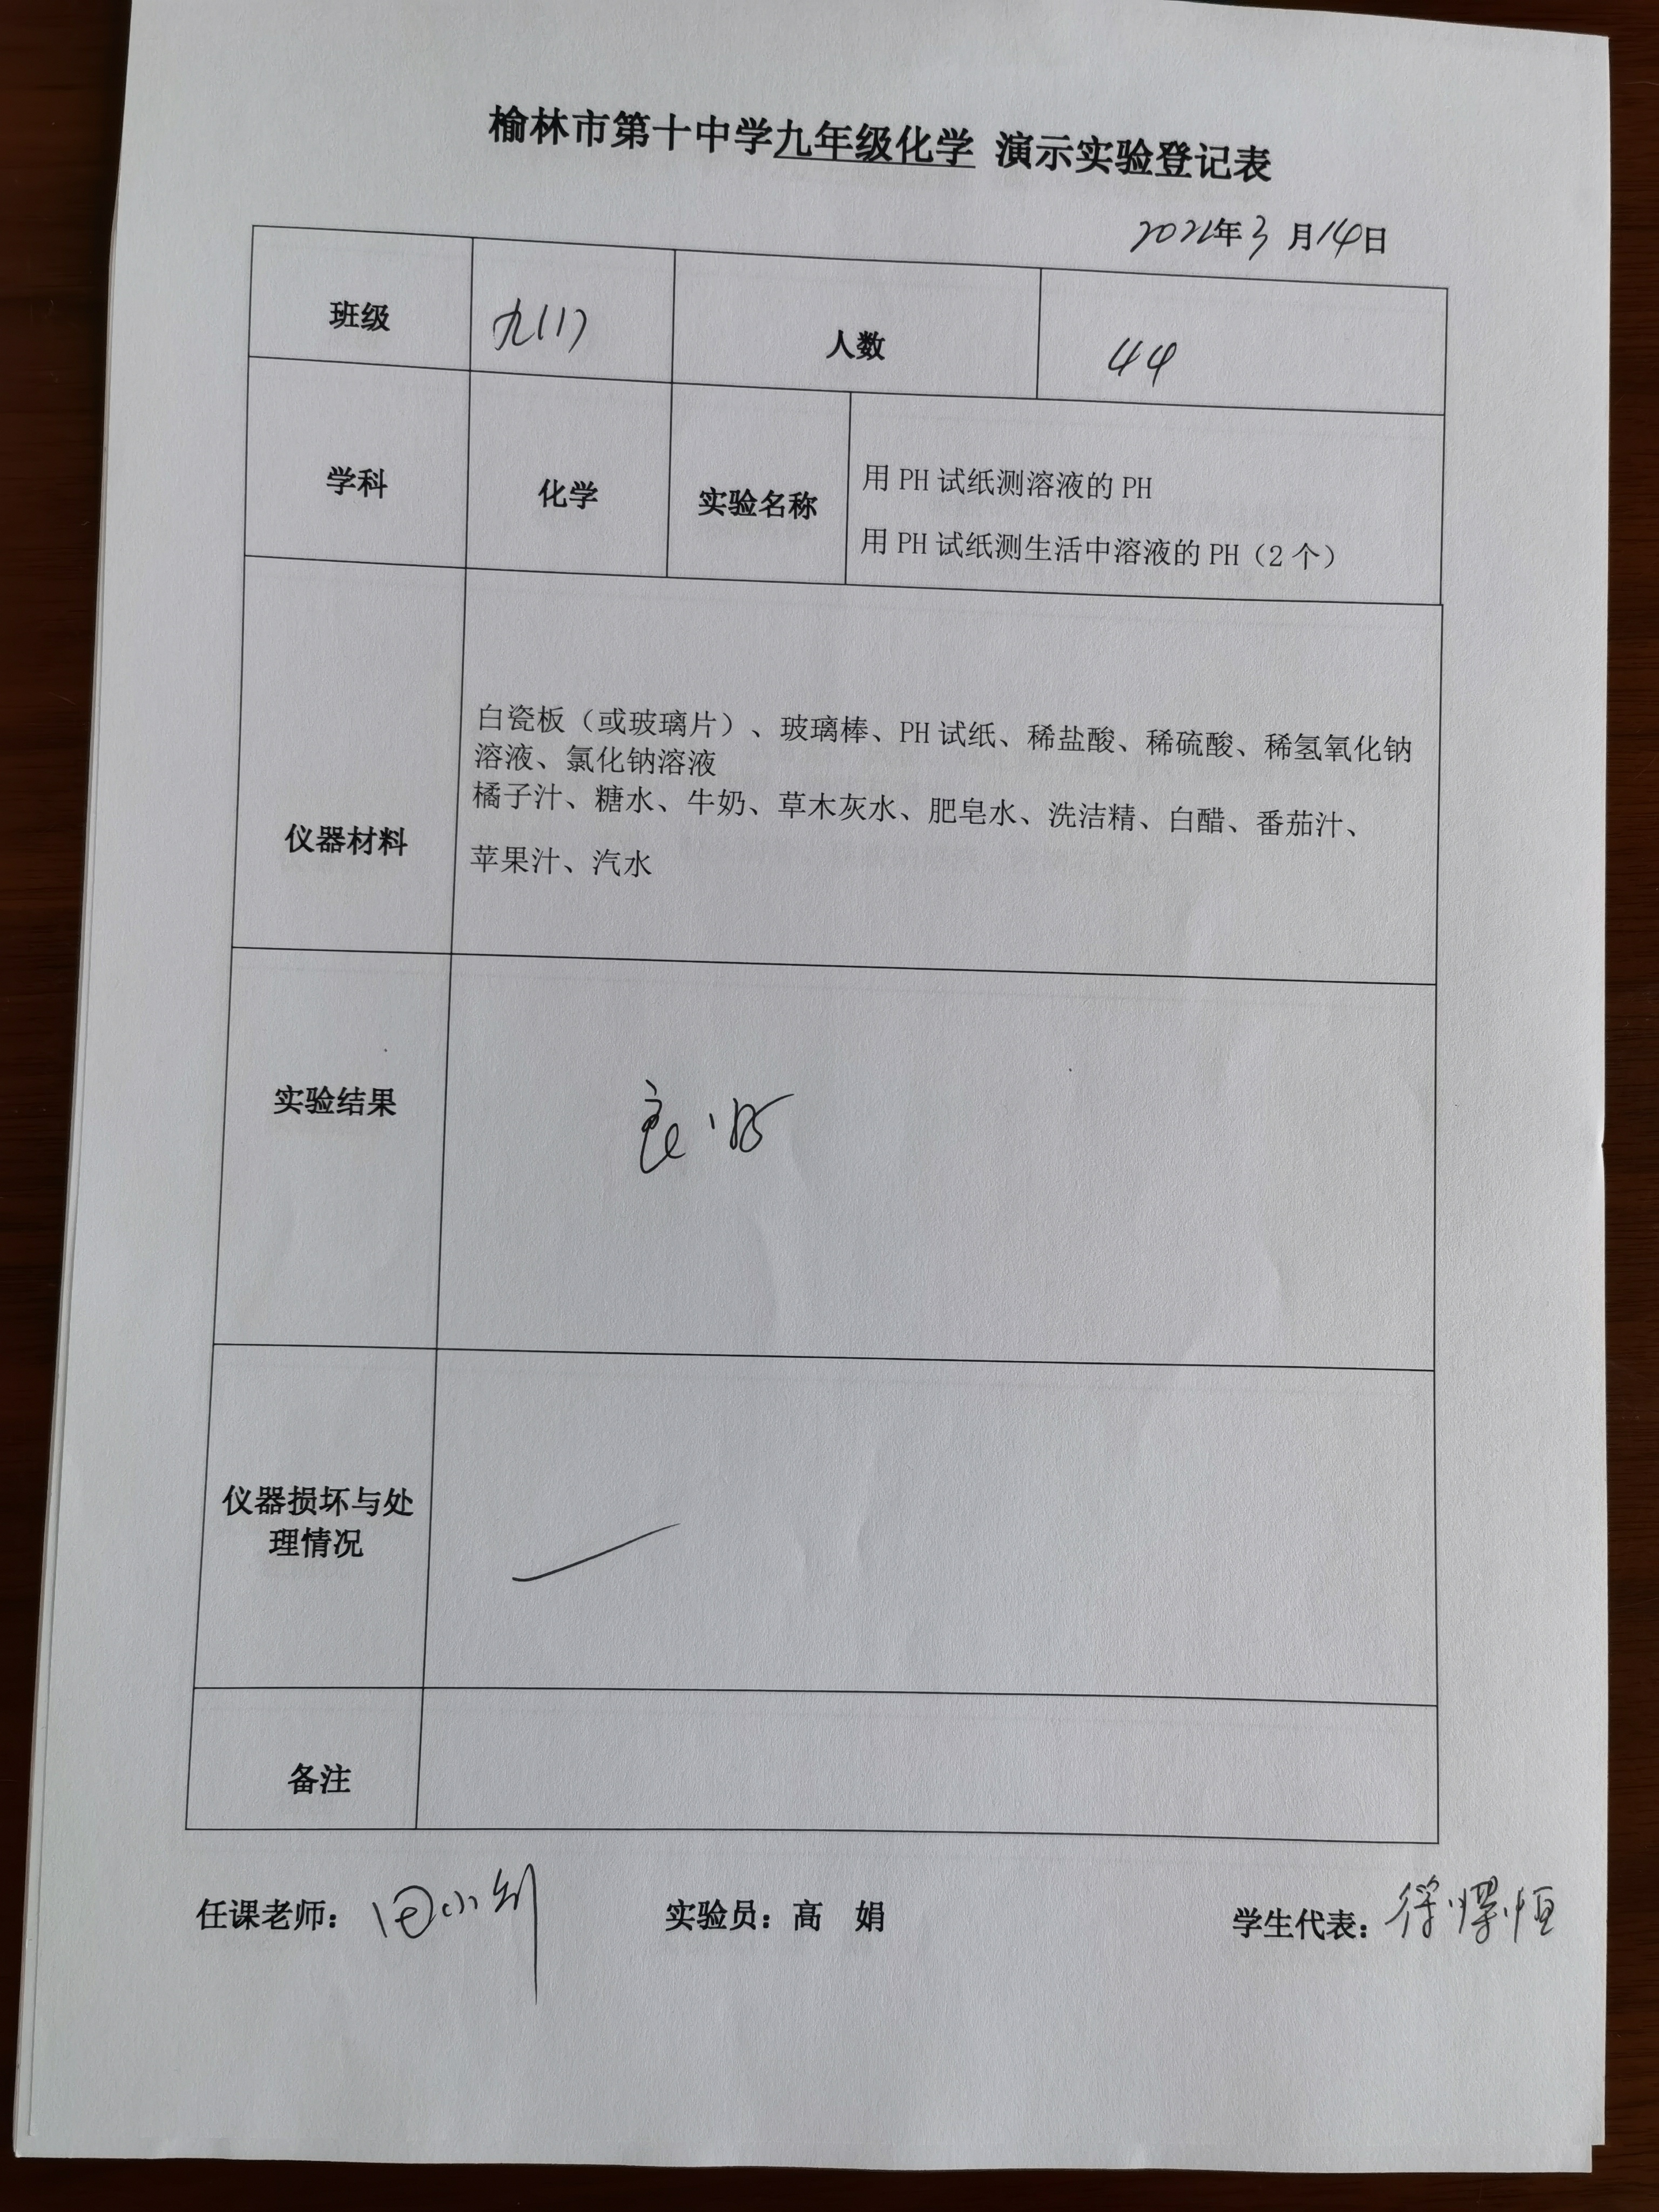 榆林市第十中学九年级化学 演示实验登记表
2021年3月14日
班级 九(1) 人数 44
学科 化学 实验名称 用 PH 试纸测溶液的 PH
用 PH 试纸测生活中溶液的 PH（2 个）
仪器材料
白瓷板（或玻璃片）、玻璃棒、PH 试纸、稀盐酸、稀硫酸、稀氢氧化钠
溶液、氯化钠溶液
橘子汁、糖水、牛奶、草木灰水、肥皂水、洗洁精、白醋、番茄汁、
苹果汁、汽水
实验结果 良好
仪器损坏与处
理情况
备注
任课老师： 实验员：高 娟 学生代表：